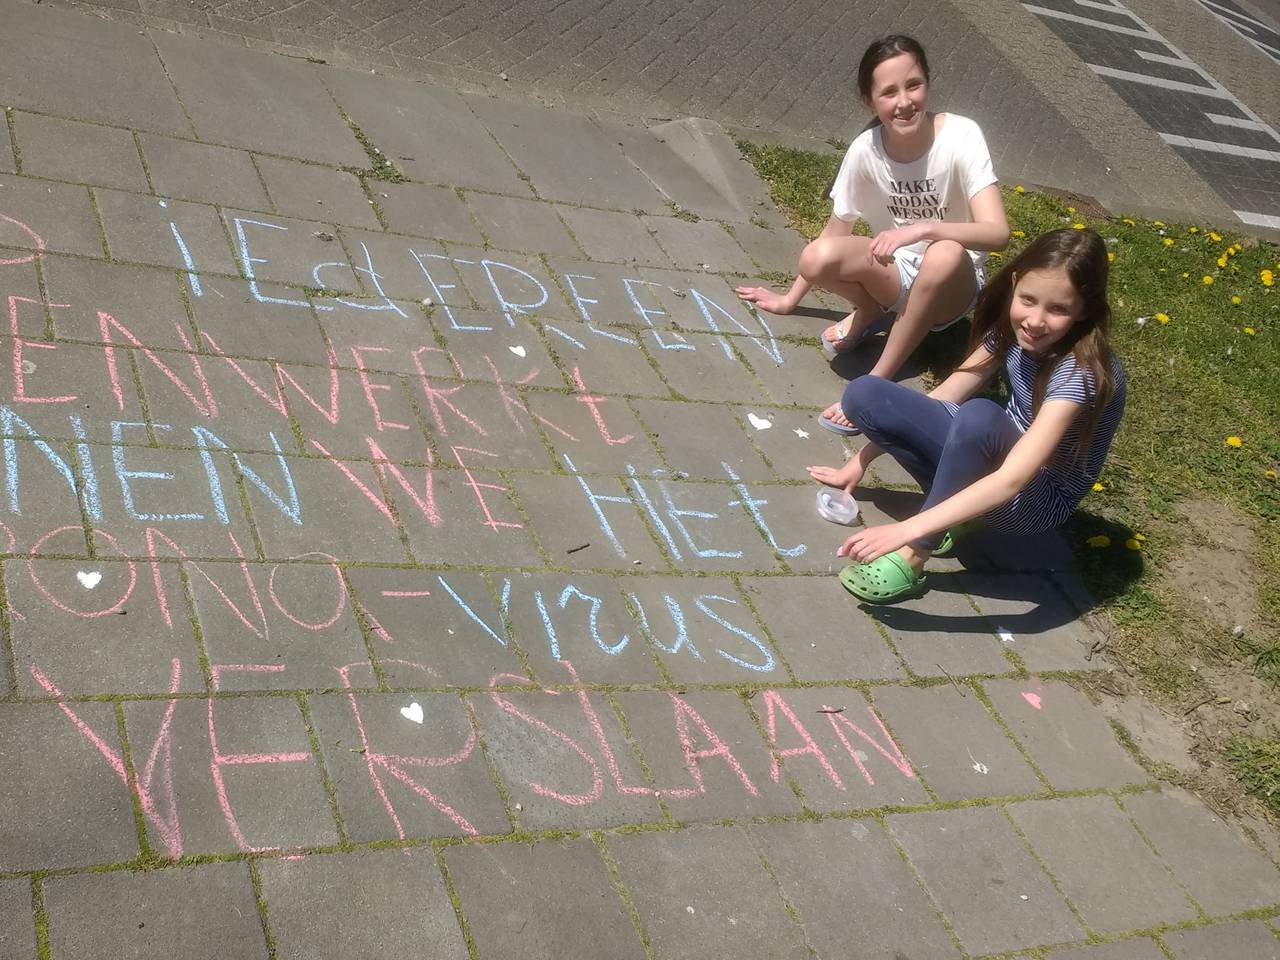 iEdEREEN
ENWERKt
NEN WE HEt
RONA-VIRUS
VERSLAAN
MAKE
TODAY
AWESOME